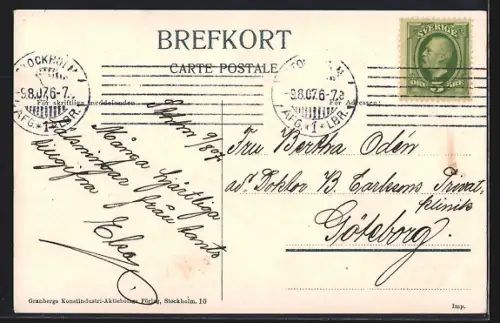 BREFKORT
CARTE POSTALE
SVERIGE
5
STOCKHOLM
1
-9.8.07.6-7.
AFG. LBR.
STOCKHOLM
1
-9.8.07.6-7.
AFG. LBR.
För skriftliga meddelanden.
För Adressen:
9/8 07
Många hjärtliga
hälsningar från
Elsa
Fru Bertha Odén
Doktor B. Carlssons Privat-
klinik
Göteborg.
Granbergs Konstindustri-Aktiebolags Förlag, Stockholm. 10
Imp.